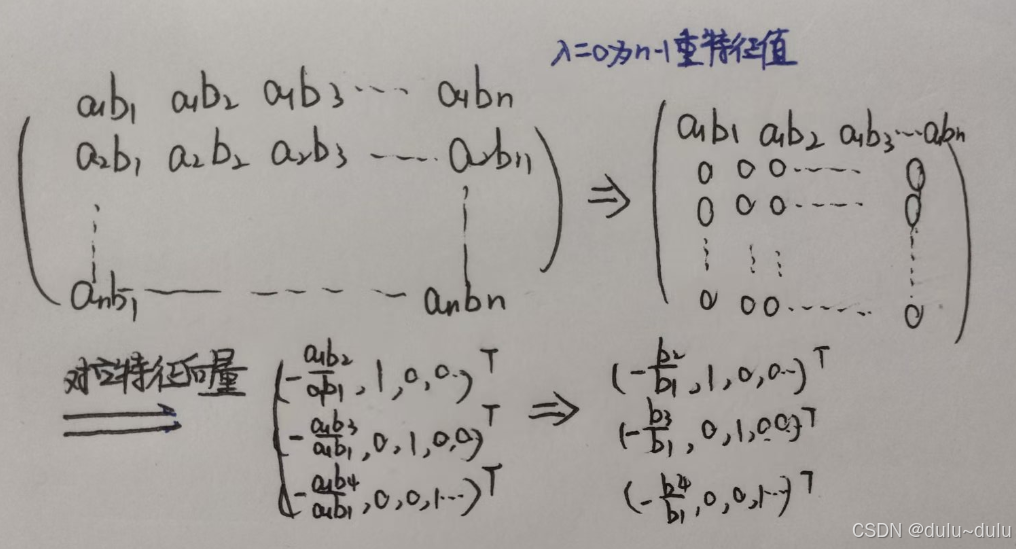 λ=0为n-1重特征值
a₁b₁ a₁b₂ a₁b₃ ···· a₁bn
a₂b₁ a₂b₂ a₂b₃ ····· a₂bn
anb₁ — — — — anbn
⇒
a₁b₁ a₁b₂ a₁b₃ ··· a₁bn
0 0 0 ······ 0
0 0 0 ······ 0
0 0 0 ······ 0
对应特征向量
(-a₁b₂/a₁b₁, 1, 0, 0··)ᵀ ⇒ (-b₂/b₁, 1, 0, 0··)ᵀ
(-a₁b₃/a₁b₁, 0, 1, 0, 0)ᵀ (-b₃/b₁, 0, 1, 0 0··)ᵀ
(-a₁b₄/a₁b₁, 0, 0, 1···)ᵀ (-b₄/b₁, 0, 0, 1···)ᵀ
CSDN @dulu~dulu